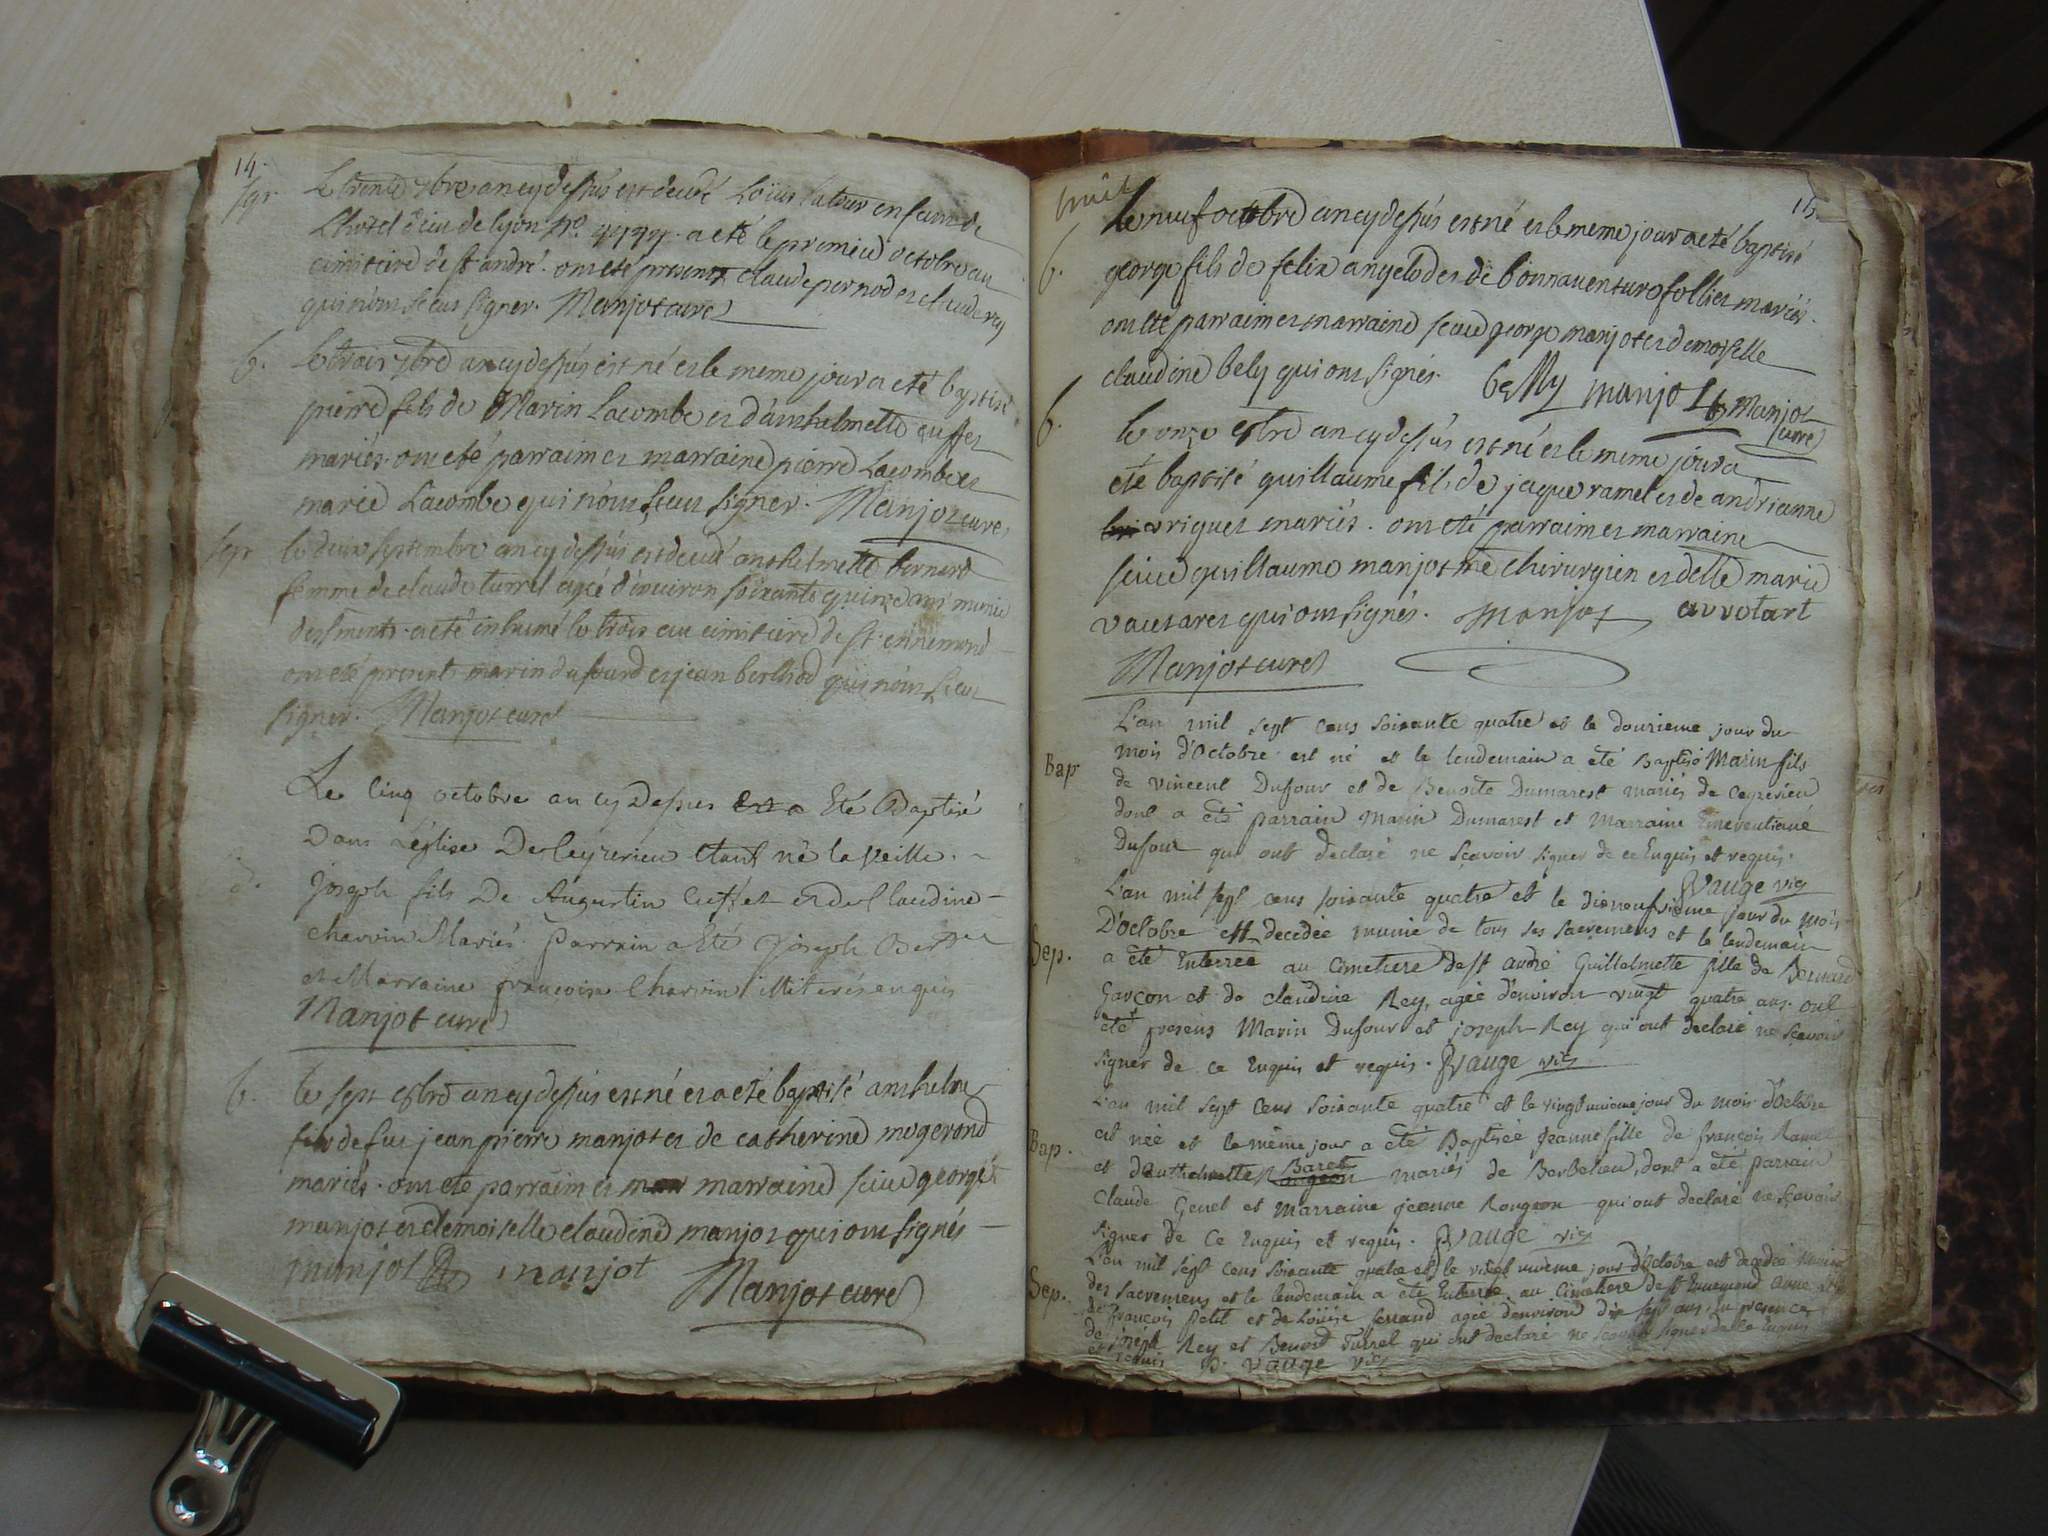 14.
Spr. Le trente 7bre an cy dessus est decedé Loüis Latour enfant de
L'hotel dieu de lyon no. a eté le premier octobre au
cimitiere de st. andré. ont eté presents claude pernod et claude rey
qui n'ont sceu signer. Manjot curé
b. Le trois 7bre an cy dessus est né et le meme jour a eté baptisé
pierre fils de Marin Lacombe et d'anthelmette cuffet
mariés. ont eté parrain et marraine pierre Lacombe et
marie Lacombe qui n'ont sceu signer. Manjot curé
Spr le deux septembre an cy dessus est decedé anthelmette bernard
femme de claude turrel agée d'environ soixante quinze ans munie
des sments. a eté inhumé le trois au cimitiere de st. ennemond
ont eté presents marin dufourd et jean berthod qui n'ont sceu
signer. Manjot curé
Le Cinq octobre an cy Dessus Est a Eté Baptisé
Dans L'église De Ceyzerieu Etant né la veille.
b. Joseph fils De Augustin Cuffet et de Claudine
charvin Mariés. Parrain a Eté Joseph
et Marraine françoise Charvin illiterés enquis
Manjot curé
b. Le sept 8bre an cy dessus est né et a eté baptisé anthelme
fils de feu jean pierre manjot et de catherine mogerond
mariés. ont eté parrain et mar marraine sieur george
manjot et demoiselle claudine manjot qui ont signés
manjot manjot Manjot curé
huit 15
Le neuf octobre an cy dessus est né et le meme jour a eté baptisé
b. george fils de felix angelod et de bonnaventure follier mariés.
ont eté parrain et marraine sieur george manjot et demoiselle
claudine bely qui ont signés. belly manjot Manjot
curé
b. le onze 8bre an cy dessus est né et le meme jour a
eté baptisé guillaume fils de jaque ramel et de andrianne
bri vriguet mariés. ont eté parrain et marraine
sieur guillaume manjot me chirurgien et delle marie
qui ont signés. Manjot
Manjot curé
L'an mil sept cens soixante quatre et le douzieme jour du
Bap mois d'Octobre est né et le lendemain a eté Baptisé Marin fils
de vincent Dufour et de Benoite Dumarest mariés de Ceyzerieu
dont a été parrain Marin Dumarest et Marraine
Dufour qui ont declaré ne sçavoir signer de ce Enquis et requis.
Vauge vic
L'an mil sept cens soixante quatre et le dixneufvieme jour du mois
D'Octobre est decedée munie de tous ses sacremens et le lendemain
Sep. a été Enterrée au Cimetiere de st andré Guillelmette fille de Bernard
Garçon et de claudine Rey, agée d'environ vingt quatre ans. ont
été presens Marin Dufour et joseph Rey qui ont declaré ne sçavoir
signer de ce Enquis et requis. Vauge vic
L'an mil sept cens soixante quatre et le vingt unieme jour du mois d'Octobre
est née et le même jour a été Baptisée Jeanne fille de françois Ramel
Bap. et d'anthelmette Rongeon Baret mariés de Berbelieu, dont a été parrain
Claude Genet et Marraine jeanne Rongeon qui ont declaré ne sçavoir
signer de Ce Enquis et requis. Vauge vic
L'an mil sept cens soixante quatre et le vingt unieme jour d'Octobre est decedée munie
Sep. des sacremens et le lendemain a été Enterrée au Cimetiere de st Ennemond anne fille
de françois Petit et de Loüise ferrand agée d'environ dix sept ans, En presence
de joseph Rey et Benoit Turrel qui ont declaré ne sçavoir signer de Ce Enquis
et requis Vauge vic